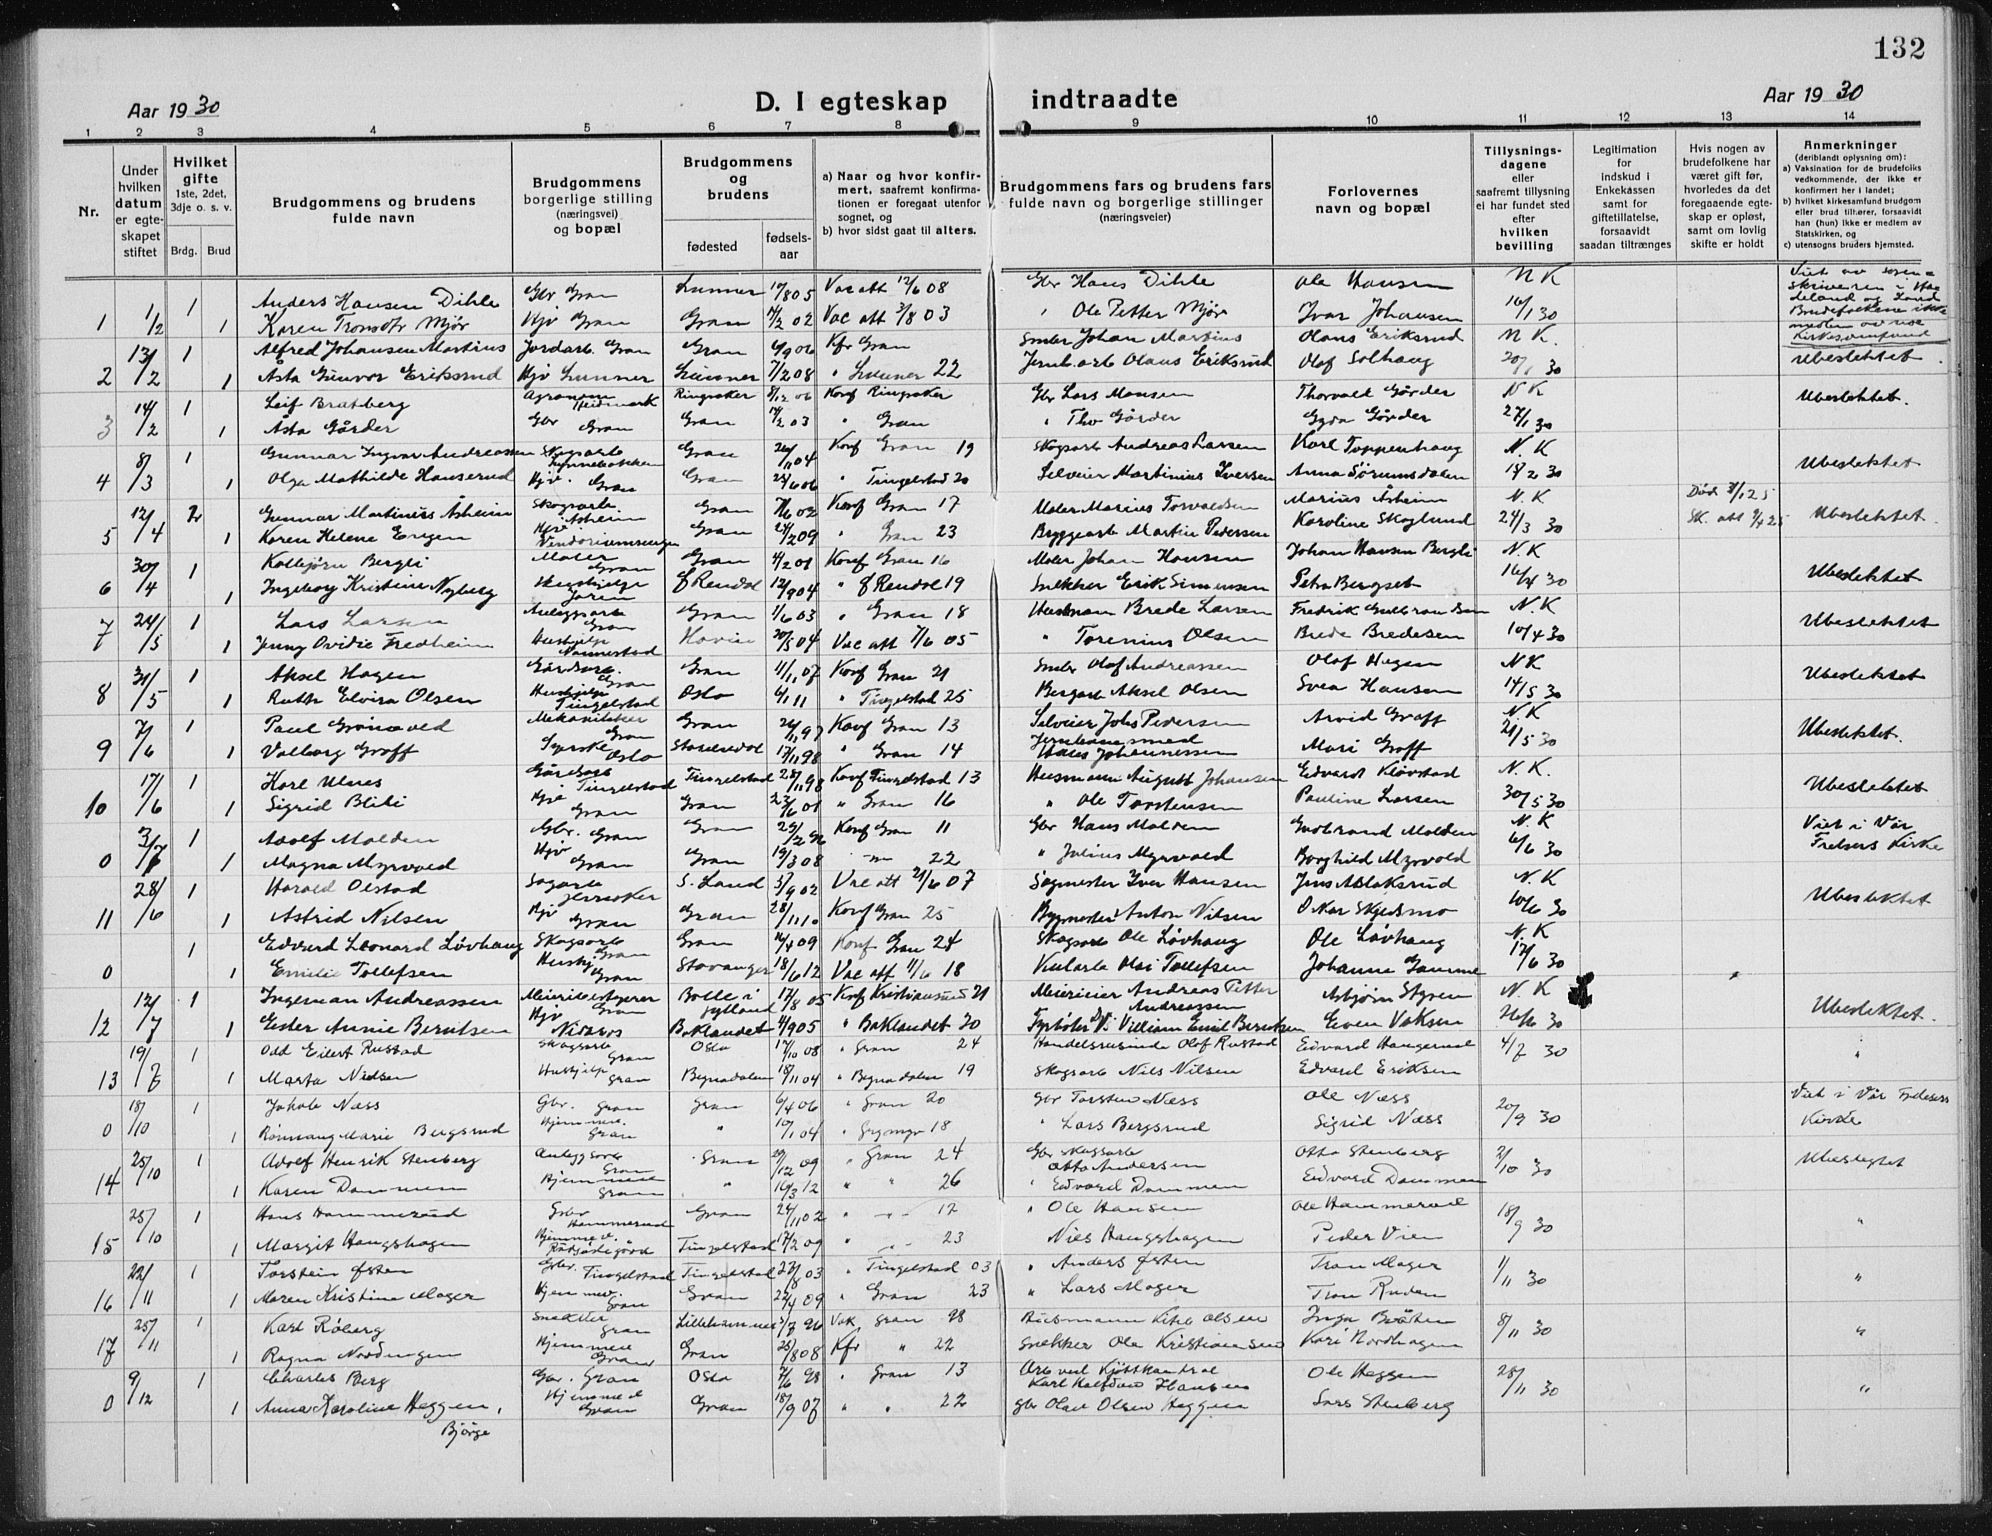 132
Aar 1930
D. I egteskap indtraadte
Aar 1930
1 2 3 4 5 6 7 8 9 10 11 12 13 14
Nr.
Under hvilken datum er egteskapet stiftet
Hvilket gifte
1ste, 2det, 3dje o. s. v.
Brdg. Brud
Brudgommens og brudens fulde navn
Brudgommens borgerlige stilling (næringsvei) og bopæl
Brudgommens og brudens
fødested
fødsels-aar
a) Naar og hvor konfirmert, saafremt konfirmationen er foregaat utenfor sognet, og
b) hvor sidst gaat til alters.
Brudgommens fars og brudens fars fulde navn og borgerlige stillinger (næringsveier)
Forlovernes navn og bopæl
Tillysningsdagene eller saafremt tillysning ei har fundet sted efter hvilken bevilling
Legitimation for indskud i Enkekassen samt for giftetillatelse, forsaavidt saadan tiltrænges
Hvis nogen av brudefolkene har været gift før, hvorledes da det foregaaende egteskap er opløst, samt om lovlig skifte er holdt
Anmerkninger
(deriblandt oplysning om):
a) Vaksination for de brudefolks vedkommende, der ikke er konfirmert her i landet;
b) hvilket kirkesamfund brudgom eller brud tilhører, forsaavidt han (hun) ikke er medlem av Statskirken, og
c) utensogns bruders hjemsted.
1 1/2 1 Anders Hansen Dihle Gbr Gran Lunner 05 Vac att 12/6 08 Gbr Hans Dihle Ole Hansen N K
1 Karen Tronsdtr Mjør Hjv Gran Gran 02 Vac att 3/8 03 " Ole Petter Mjør Ivar Johansen 16/1 30
2 13/2 1 Alfred Johansen Martins Jordarb. Gran Gran 6/9 06 Kfr Gran Smbr Johan Martins Olaus Eriksrud N K. Ubeslektet
1 Åsta Gunvor Eriksrud Hjv Lunner Lunner 7/2 08 " Lunner 22 Jernb.arb Olaus Eriksrud Olaf Solhaug 20/1 30
3 14/2 1 Leif Bratberg Agronom Hedmark Ringsaker 8/12 06 Konf Ringsaker Gbr Lars Hansen Thorvald Gårder N K Ubeslektet.
1 Åsta Gårder Gbr Gran Gran 03 " Gran " Thv Gårder Gyda Gårder 27/1 30
4 8/3 1 Gunnar Ingvar Andreassen Skogsarb Gran 04 Konf Gran 19 Skogsarb Andreas Larsen Karl Toppenhaug N. K Ubeslektet
1 Olga Mathilde Hanserud Hjv. Gran Gran 06 " Tingelstad 20 Selveier Martinius Iversen Anna Sørumsdalen 30
5 12/4 2 Gunnar Martinius Åsheim Skogsarb. Åsheim Gran 02 Konf Gran 17 Maler Marius Torvaldsen Marius Åsheim N. K Ubeslektet.
1 Karen Helene Engen Hjv Gran 24/2 09 " Gran 23 Byggearb Martin Pedersen Karoline Skoglund 24/3 30
6 30/4 1 Kolbjørn Bergli Maler Gran Gran 4/2 01 Konf Gran 16 Maler Johan Hansen Johan Hansen Bergli N. K Ubeslektet
1 Ingeborg Kristine Nyberg Jaren Ø Rendal 12/9 04 " Ø Rendal 19 Snekker Erik Simensen Petra Bergset 16/4 30
7 24/5 1 Lars Larsen Anleggsarb Gran Gran 1/6 03 " Gran 18 Husmann Brede Larsen Fredrik Gulbrandsen N. K Ubeslektet
1 Jenny Ovidie Fredheim Hushjelp Nannestad Hovin 04 Vac att 7/6 05 " Torenius Olsen Brede Bredesen 10/4 30
8 31/5 1 Aksel Hagen Gårdsarb. Gran Gran 11/11 07 Konf Gran 21 Smbr Olaf Andreassen Olaf Hagen N K Ubeslektet
1 Ruth Elvira Olsen Hushjelp Tingelstad Oslo 11 " Tingelstad 25 Bergarb Aksel Olsen Svea Hansen 14/5 30
9 7/6 1 Paul Grönvold Mekaniker Gran Gran 97 Konf Gran 13 Selveier Johs Pedersen Arvid Groff N. K Ubeslektet.
1 Valborg Groff Syerske Oslo 17/11 98 " Gran 14 Jernbanesmed Hans Johannessen Mari Groff 21/5 30
10 17/6 1 Karl Ulnes Gårdsarb Tingelstad Tingelstad 98 Konf Tingelstad 13 Husmann August Johansen Edvard Kløvstad N. K. Ubeslektet
1 Sigrid Blili Hjv Gran Gran 23/6 01 " Gran 16 " Ole Torstensen Pauline Larsen 30/5 30
0 1 Adolf Molden Gbr. Gran Gran Konf Gran 11 Gbr Hans Molden Gudbrand Molden N. K Viet i Vår Frelsers Kirke
1 Magna Myrvold Hjv Gran Gran 19/3 08 22 " Julius Myrvold Borghild Myrvold 6/6 30
11 28/6 1 Harald Olstad Sagarb Jevnaker S. Land 5/9 02 Vac att 21/6 07 Sagmester Iver Hansen Jens Ablaksrud N. K Ubeslektet
1 Astrid Nilsen Hjv Gran Gran 28/11 10 Konf Gran 25 Bygmester Anton Nilsen Oskar Skjedsmo 10/6 30
0 1 Edvard Leonard Løvhaug Skogsarb Gran Gran 4 09 Konf Gran 24 Skogsarb Ole Løvhaug Ole Løvhaug N. K
1 Emilie Tollefsen Hushj. Gran Stavanger 18/6 12 Vac att 11/6 18 Olai Tollefsen Johanne Gamme 17/6 30
12 12/7 1 Ingeman Andreassen Meieribestyrer Gran Bolle i Jylland 17/8 05 Konf Kristiansund 21 Meierieier Andreas Petter Andreassen Asbjørn Styren N. K Ubeslektet.
1 Ester Annie Berntsen Hjv Nidaros Baklandet 4/9 05 " Baklandet 20 Fyrbøter Villiam Emil Berntsen Even Voksen 26/6 30
13 19/7 1 Odd Eilert Rustad Skogsarb Gran Oslo 17/10 08 " Gran 24 Handelsreisende Olaf Rustad Edvard Haugerud 4/7 30 "
1 Marta Nielsen Hushjelp Gran Begnadalen 18/11 04 " Begnadalen 19 Skogsarb Nils Nilsen Edvard Eriksen
0 18/10 1 Jakob Næss Gbr. Gran Gran 6/4 06 " Gran 20 Gbr Torsten Næss Ole Næss 20/9 30 Viet i Vår Frelsers Kirke
1 Rønnaug Marie Bergsrud Hjemmev. Gran " 10/1 04 18 " Lars Bergsrud Sigrid Næss
14 25/10 1 Adolf Henrik Stenberg Anleggsarb Gran Gran 12 09 " Gran 24 Gbr Skogsarb Otto Andersen Otto Stenberg 2/10 30 Ubeslegtet
1 Karen Dammen Hjemmev Gran " 16/3 12 " " 26 " Edvard Dammen Edvard Dammen
15 25/10 1 Hans Hammerud Gbr Hammerud Gran 24/11 02 " 17 " Ole Hansen Ole Hammerud 18/9 30 "
1 Margit Haugshagen Hjemmev. Tingelstad 17/2 09 " 23 Nils Haugshagen Peder Vien
16 22/11 1 Torstein Østen Gbr. Tingelstad Tingelstad 27/8 03 " Tingelstad 03 " Anders Østen Tron Mager 1/11 30 "
1 Maren Kristine Mager Hjemmev. Gran Gran 22/4 09 " Gran 23 " Lars Mager Tron Ruden
17 25/11 1 Karl Røberg Snekker Gran Lillehammer 96 Vak. Gran 98 Husmann Olsen Inga Bråten 8/11 30 "
1 Ragna Nordengen Hjemmev Gran Gran 25/8 08 Kfr " 22 Snekker Ole Kristiansen Kari Nordhagen
0 9/12 1 Charles Berg Gbr. Gran Oslo 7/6 98 " Gran 13 Arb ved Kjøttkontrol Karl Halfdan Hansen Ole Heggen 28/11 30 "
1 Anna Karoline Heggen, Hjemmev Gran Gran 18/9 07 " " 22 gbr Olav Olsen Heggen Lars Stenberg
Bjørge
Død 25
Viet av sorenskriveren i Hadeland og Land Brudefolkene ikke medlem av noe Kirkesamfund